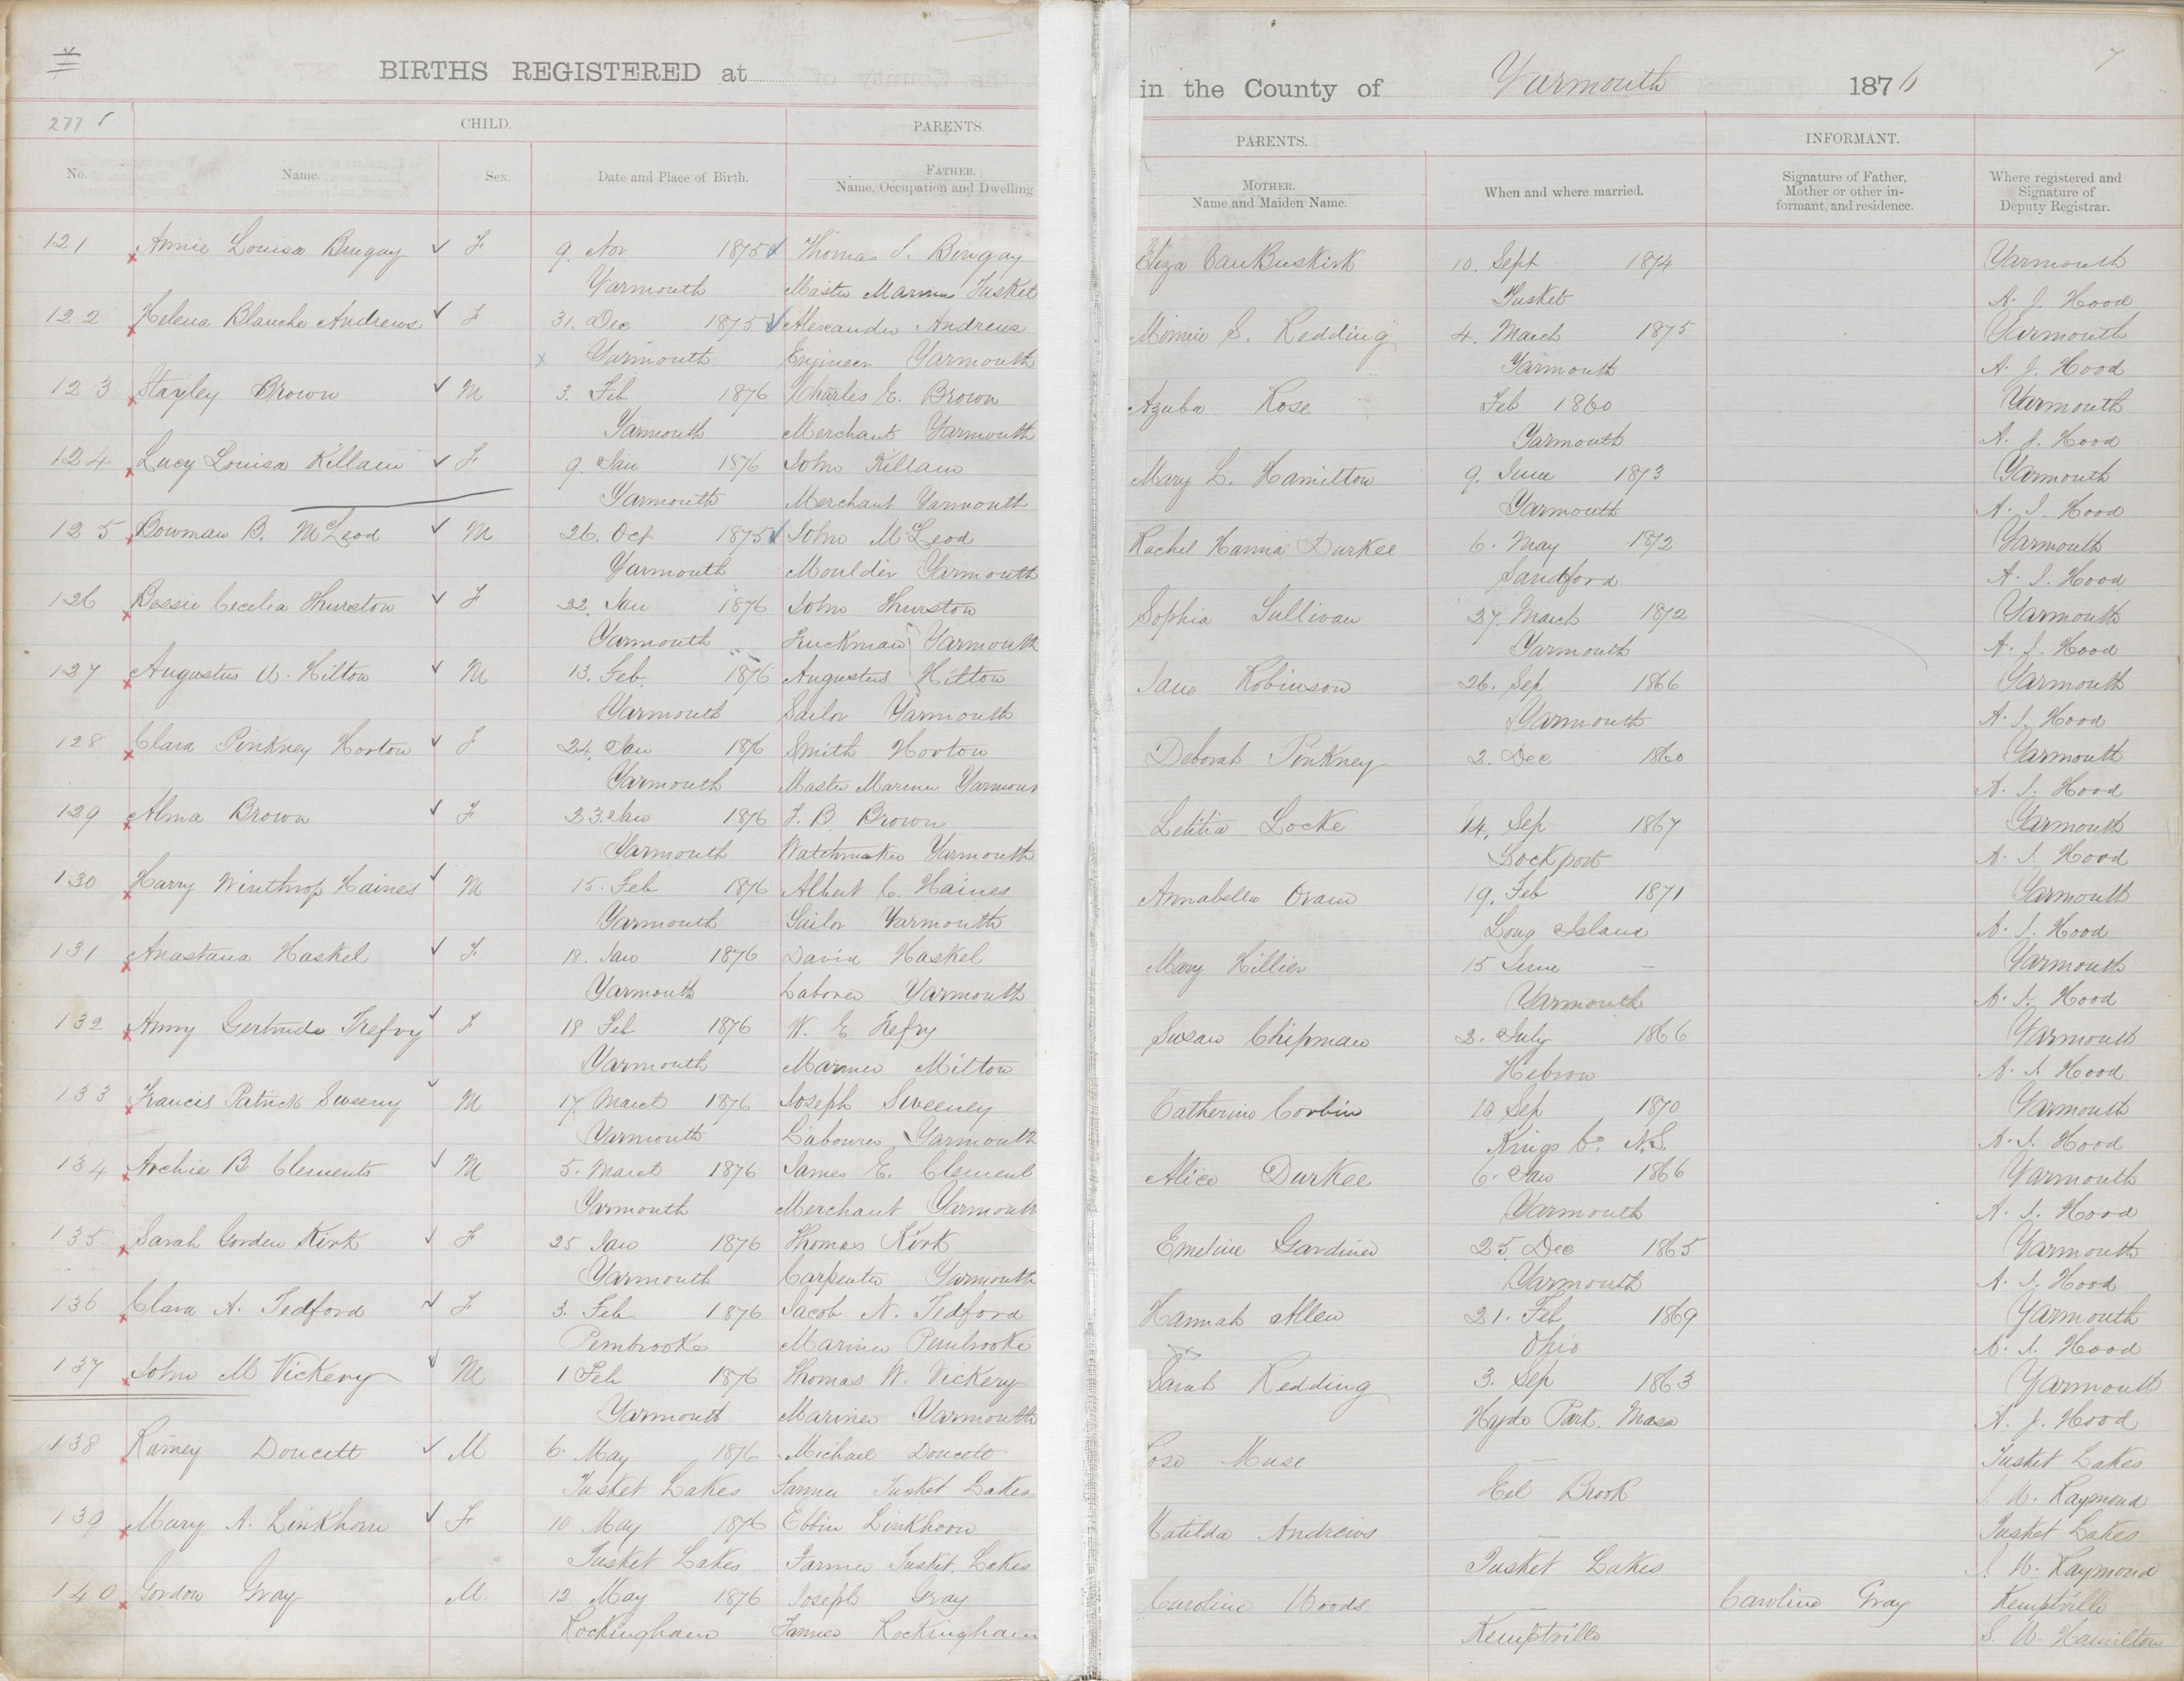 4
BIRTHS REGISTERED at
277
CHILD.
PARENTS.
No.
Name.
Sex.
Date and Place of Birth.
FATHER.
Name, Occupation and Dwelling
121 Annie Louisa Bingay F 9. Nov 1875 Thomas S. Bingay
Yarmouth Master Mariner Tusket
122 Helena Blanche Andrews F 31. Dec 1875 Alexander Andrews
Yarmouth Engineer Yarmouth
123 Stayley Brown M 3. Feb 1876 Charles E. Brown
Yarmouth Merchant Yarmouth
124 Lucy Louisa Killam F 9. Jan 1876 John Killam
Yarmouth Merchant Yarmouth
125 Bowman B. McLeod M 26. Oct 1875 John McLeod
Yarmouth Moulder Yarmouth
126 Bessie Cecelia Thurston F 22. Jan 1876 John Thurston
Yarmouth Truckman Yarmouth
127 Augustus W. Hilton M 13. Feb. 1876 Augustus Hilton
Yarmouth Sailor Yarmouth
128 Clara Pinkney Horton F 24. Jan 1876 Smith Horton
Yarmouth Master Mariner Yarmouth
129 Alma Brown F 23. Jan 1876 F. B Brown
Yarmouth Watchmaker Yarmouth
130 Harry Winthrop Haines M 15. Feb 1876 Albert C. Haines
Yarmouth Sailor Yarmouth
131 Anastana Haskel F. 18. Jan 1876 David Haskel
Yarmouth Laborer Yarmouth
132 Anny Gertrude Trefry F 18 Feb 1876 W. E Trefry
Yarmouth Mariner Milton
133 Francis Patrick Sweeny M 17. March 1876 Joseph Sweeney
Yarmouth Labourer Yarmouth
134 Archie B Clements M 5. March 1876 James E. Clement
Yarmouth Merchant Yarmouth
135 Sarah Gorden Kirk F 25 Jan 1876 Thomas Kirk
Yarmouth Carpenter Yarmouth
136 Clara A. Tedford F 3. Feb 1876 Jacob N. Tedford
Pembrooke Mariner Pembrooke
137 John M Vickery M 1 Feb 1876 Thomas W. Vickery
Yarmouth Mariner Yarmouth
138 Ramey Doucett M 6. May 1876 Michael Doucett
Tusket Lakes Farmer Tusket Lakes
139 Mary A. Linkhorn F 10 May 1876 Ebbin Linkhorn
Tusket Lakes Farmer Tusket Lakes
140 Gordon Gray M. 12 May 1876 Joseph Gray
Rockingham Farmer Rockingham
in the County of Yarmouth 1876
7
PARENTS.
INFORMANT.
MOTHER.
Name and Maiden Name.
When and where married.
Signature of Father,
Mother or other in-
formant, and residence.
Where registered and
Signature of
Deputy Registrar.
Eliza VanBuskirk 10. Sept 1874 Yarmouth
Tusket A. J. Hood
Minnie S. Redding 4. March 1875 Yarmouth
Yarmouth A. J. Hood
Azuba Rose Feb 1860 Yarmouth
Yarmouth A. J. Hood
Mary L. Hamilton 9. June 1873 Yarmouth
Yarmouth A. J. Hood
Rachel Hanna Durkee 6. May 1872 Yarmouth
Sandford A. J. Hood
Sophia Sullivan 27. March 1872 Yarmouth
Yarmouth A. J. Hood
Jane Robinson 26. Sep 1866 Yarmouth
Yarmouth A. J. Hood
Deborah Pinkney 2. Dec 1860 Yarmouth
A. J. Hood
Letitia Locke 14. Sep 1867 Yarmouth
Lockport A. J. Hood
Annabella Oram 19. Feb 1871 Yarmouth
Long Island A. J. Hood
Mary Hillier 15 June — Yarmouth
Yarmouth A. J. Hood
Susan Chipman 2. July 1866 Yarmouth
Hebron A. J. Hood
Catherine Corbin 10 Sep 1870 Yarmouth
Kings Co. N.S. A. J. Hood
Alice Durkee 6. Jan 1866 Yarmouth
Yarmouth A. J. Hood
Emeline Gardiner 25. Dec 1865 Yarmouth
Yarmouth A. J. Hood
Hannah Allen 21. Feb 1869 Yarmouth
Ohio A. J. Hood
Sarah Redding 3. Sep 1863 Yarmouth
Hyde Park. Mass A. J. Hood
Rose Muse — Tusket Lakes
Eel Brook J. W. Raymond
Matilda Andrews — Tusket Lakes
Tusket Lakes J. W. Raymond
Caroline Woods — Caroline Gray Kemptville
Kemptville S. W. Hamilton